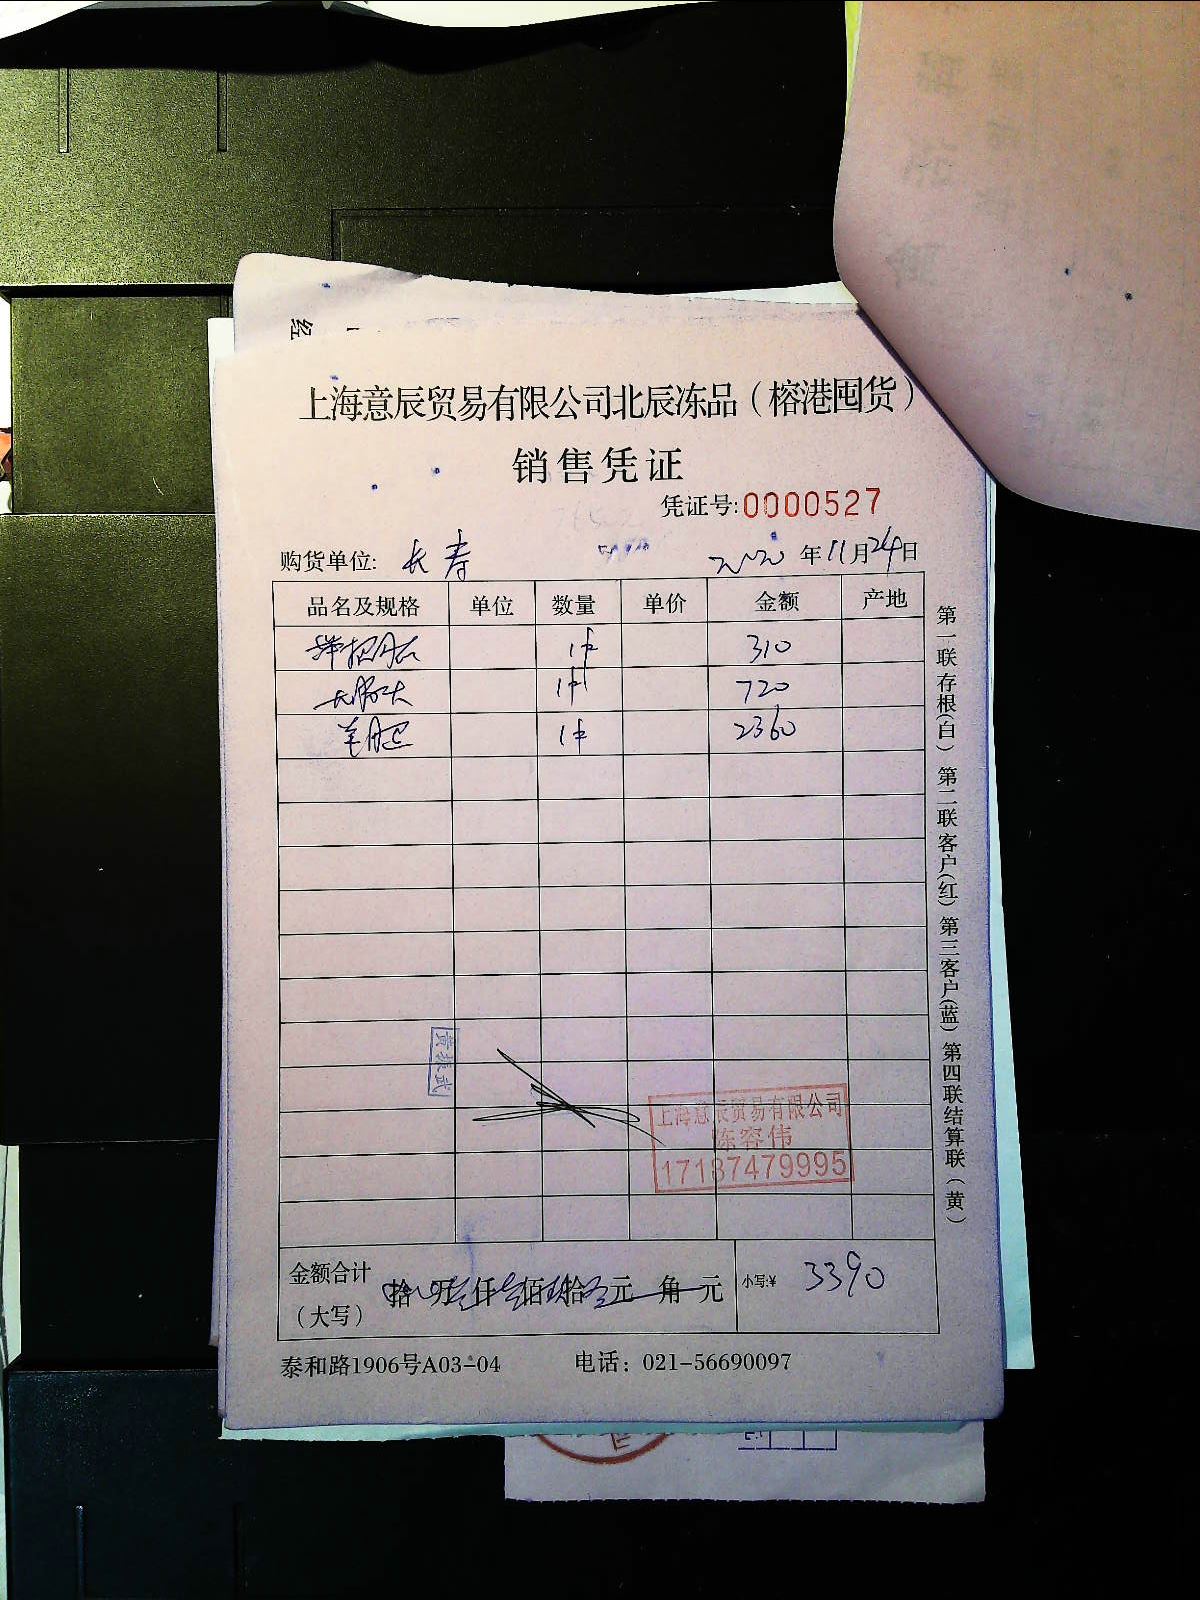 经
上海意辰贸易有限公司北辰冻品（榕港囤货）
销售凭证
凭证号:0000527
购货单位: 长寿 2020 年 11 月 24 日
品名及规格 单位 数量 单价 金额 产地
1件 310
1件 720
羊 1件 2360
黄振武
上海意辰贸易有限公司
陈容伟
17187479995
金额合计 拾 万 仟 佰 拾 元 角 元 小写:¥ 3390
（大写）
泰和路1906号A03-04 电话：021-56690097
第一联存根(白) 第二联客户(红) 第三客户(蓝) 第四联结算联（黄）